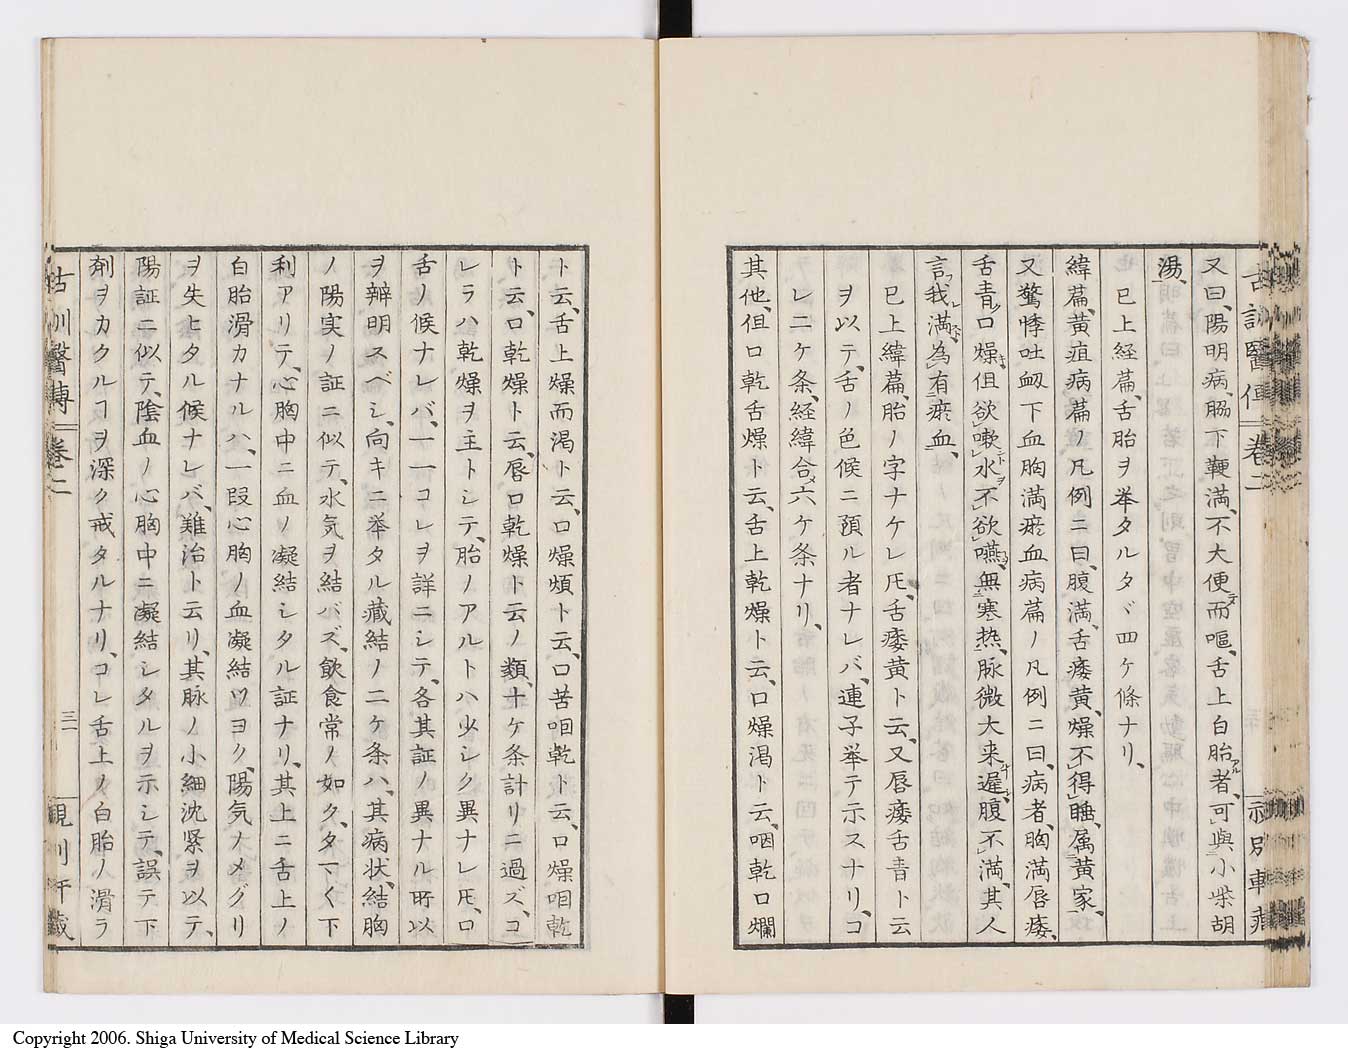 又曰、陽明病、脇下鞕満、不大便而嘔、舌上白胎者、可與小柴胡
湯、
已上経篇、舌胎ヲ挙タルタヾ四ケ條ナリ、
緯篇、黄疸病篇ノ凡例ニ曰、腹満、舌痿黄、燥不得睡、属黄家、
又驚悸吐衂下血胸満瘀血病篇ノ凡例ニ曰、病者、胸満唇痿、
舌青口燥、但欲嗽水不欲嚥、無寒热、脉微大来遅、腹不満、其人
言我満、為有瘀血、
已上緯篇、胎ノ字ナケレ𪜈、舌痿黄ト云、又唇痿舌青ト云
ヲ以テ、舌ノ色候ニ預ル者ナレバ、連子挙テ示スナリ、コ
レ二ケ条、経緯合六ケ条ナリ、
其他、但口乾舌燥ト云、舌上乾燥ト云、口燥渇ト云、咽乾口爛
ト云、舌上燥而渇ト云、口燥煩ト云、口苦咽乾ト云、口燥咽乾
ト云、口乾燥ト云、唇口乾燥ト云ノ類、十ケ条計リニ過ズ、コ
レラハ乾燥ヲ主トシテ、胎ノアルトハ少シク異ナレ𪜈、口
舌ノ候ナレバ、一一コレヲ詳ニシテ、各其証ノ異ナル所以
ヲ辨明スベシ、向キニ挙タル藏結ノ二ケ条ハ、其病状、結胸
ノ陽実ノ証ニ似テ、水気ヲ結バズ、飲食常ノ如ク、タ下く下
利アリテ、心胸中ニ血ノ凝結シタル証ナリ、其上ニ舌上ノ
白胎滑カナルハ、一段心胸ノ血凝結ツヨク、陽気ナメグリ
ヲ失ヒタル候ナレバ、難治ト云リ、其脉ノ小細沈緊ヲ以テ、
陽証ニ似テ、陰血ノ心胸中ニ凝結シタルヲ示シテ、誤テ下
剤ヲカクルヿヲ深ク戒タルナリ、コレ舌上ノ白胎ノ滑ラ
古訓醫傳 卷二 三二